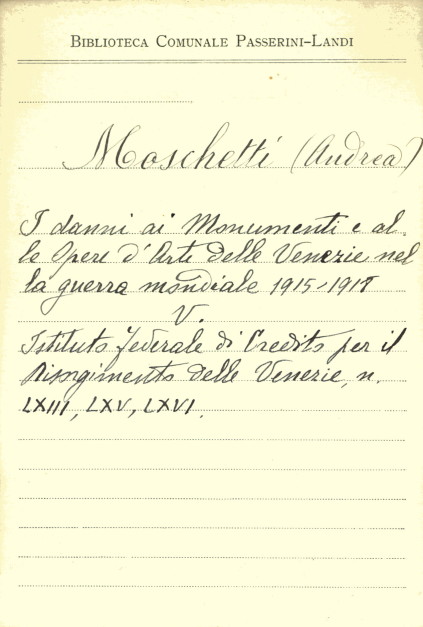 BIBLIOTECA COMUNALE PASSERINI-LANDI
Moschetti (Andrea)
I danni ai Monumenti e al-
le Opere d'Arte delle Venezie nel
la guerra mondiale 1915-1918
V.
Istituto federale di Credito per il
Risorgimento delle Venezie, n.
LXIII, LXV, LXVI.